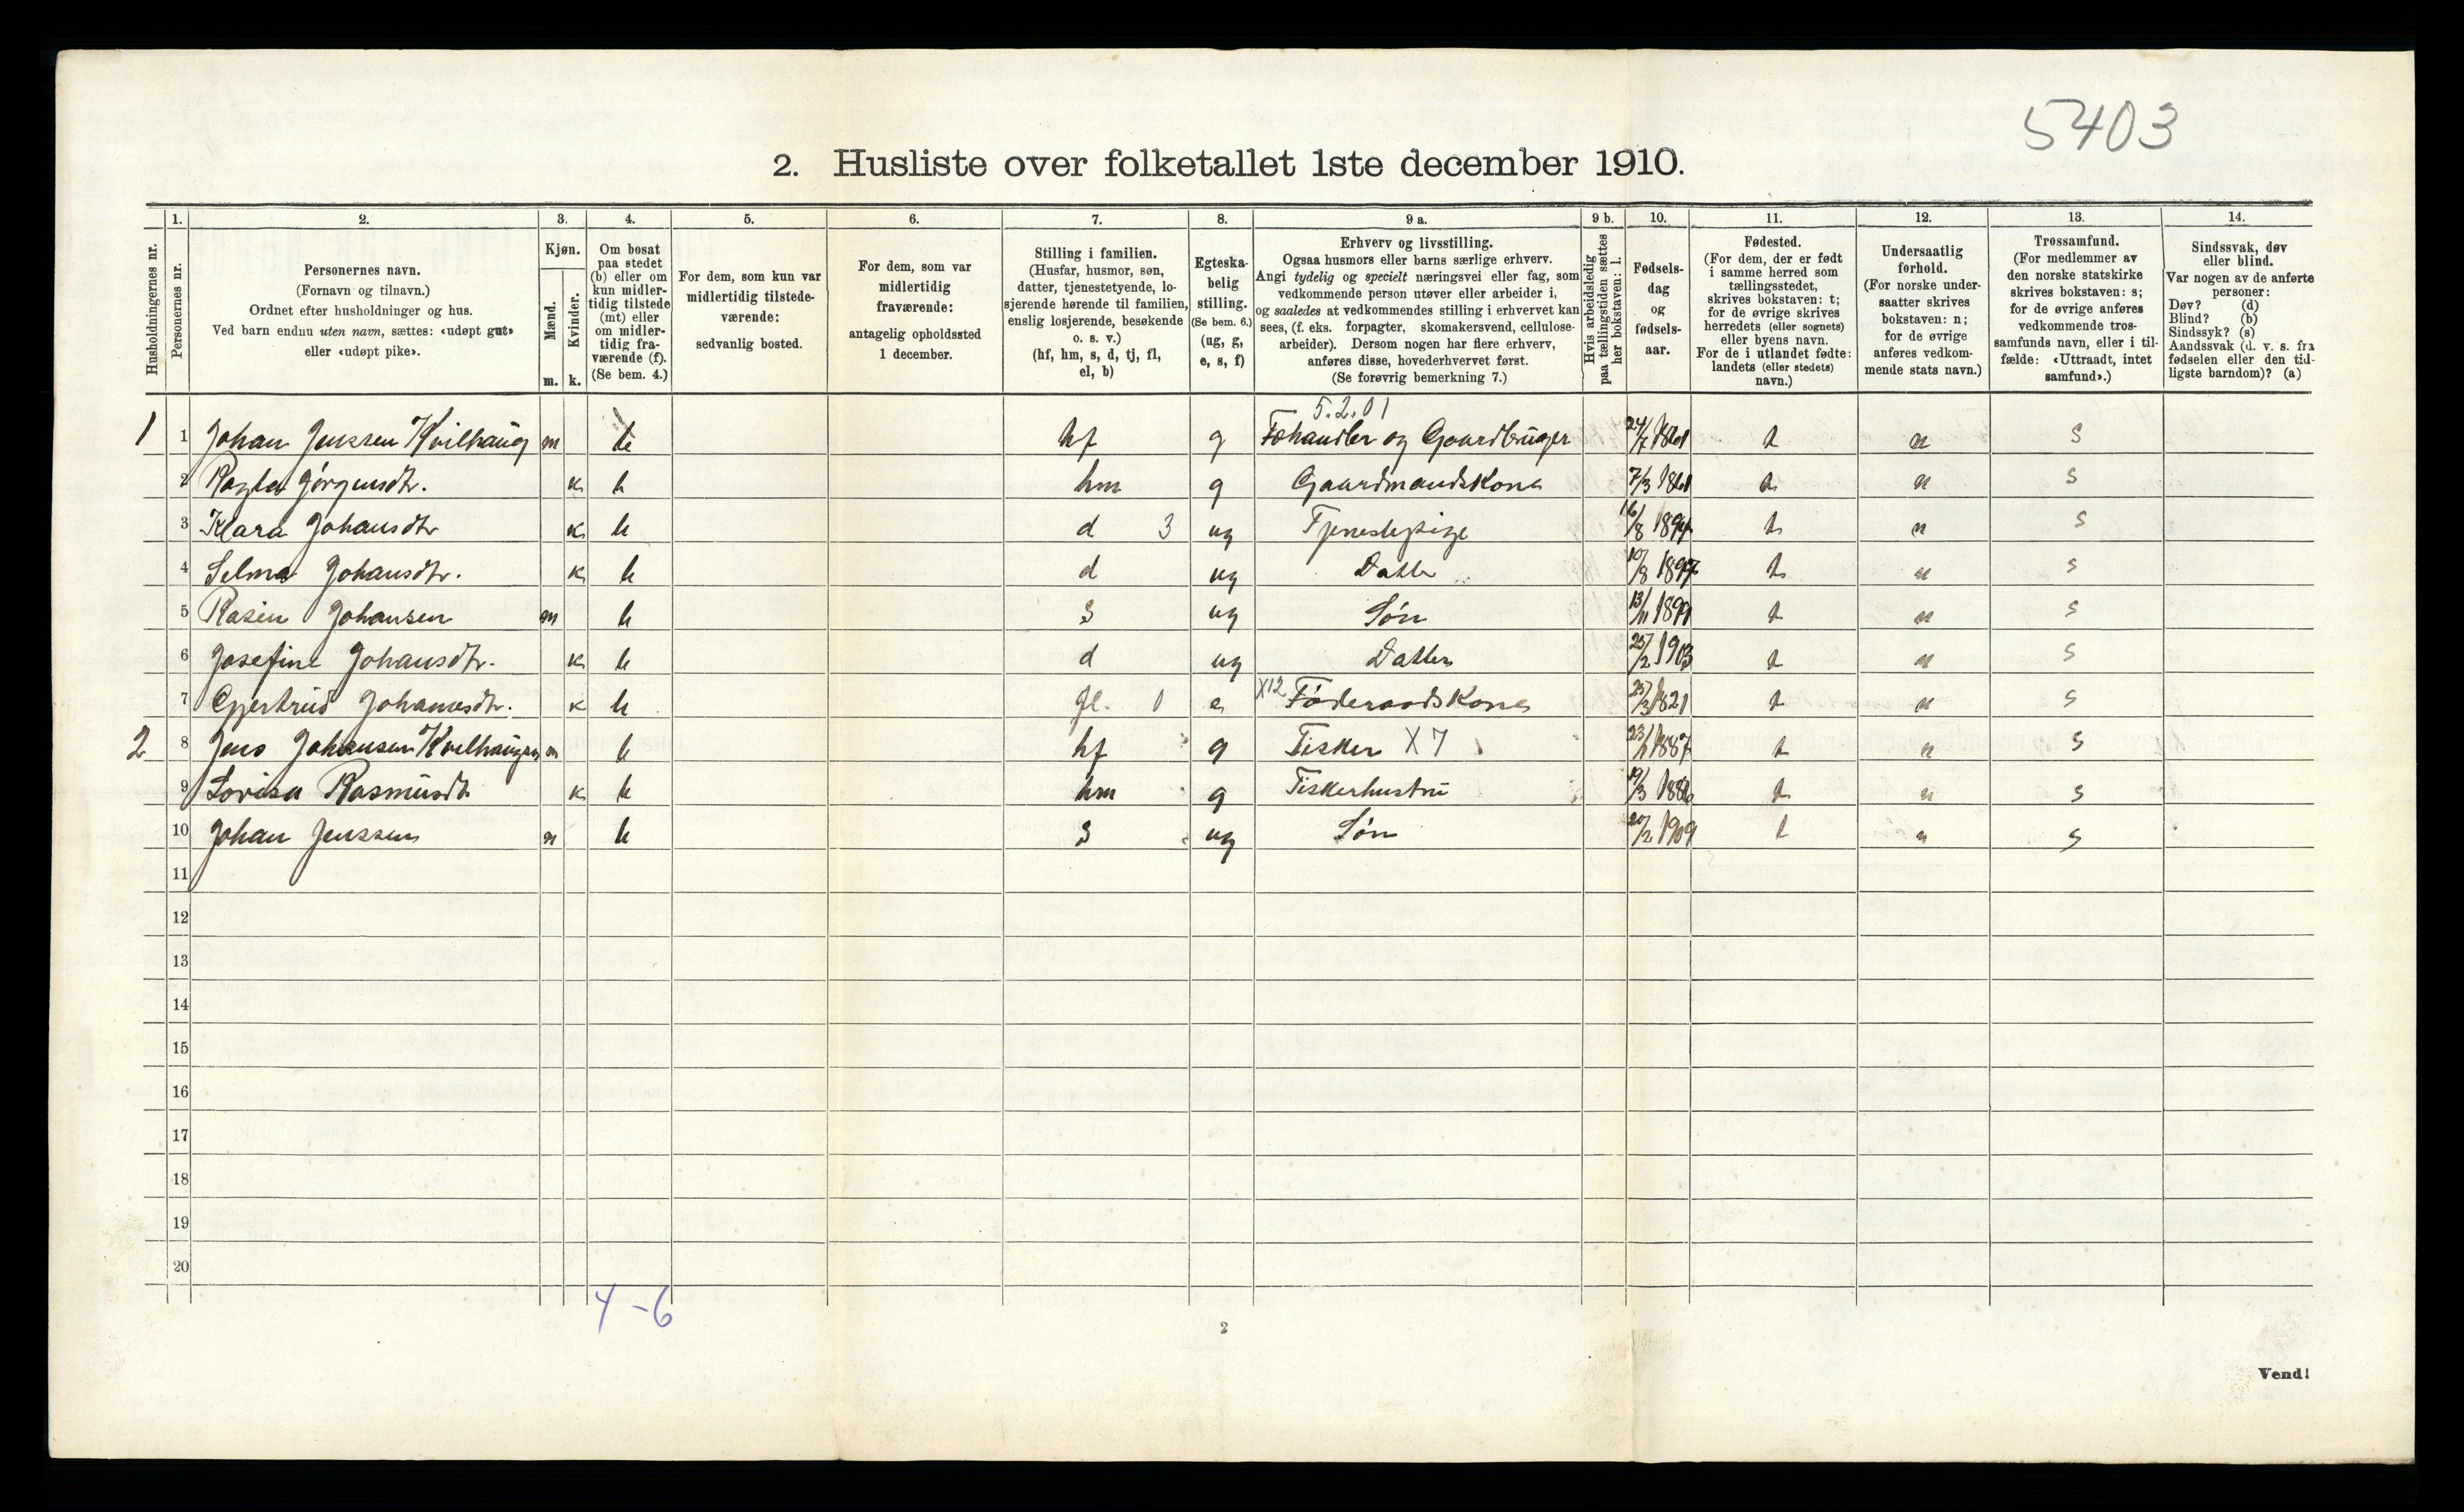 5403
2. Husliste over folketallet 1ste december 1910.
Husholdningernes nr.
1. Personernes nr.
2. Personernes navn.
(Fornavn og tilnavn.)
Ordnet efter husholdninger og hus.
Ved barn endnu uten navn, sættes: «udøpt gut»
eller «udøpt pike».
3. Kjøn.
Mænd. m.
Kvinder. k.
4. Om bosat
paa stedet
(b) eller om
kun midler-
tidig tilstede
(mt) eller
om midler-
tidig fra-
værende (f).
(Se bem. 4.)
5. For dem, som kun var
midlertidig tilstede-
værende:
sedvanlig bosted.
6. For dem, som var
midlertidig
fraværende:
antagelig opholdssted
1 december.
7. Stilling i familien.
(Husfar, husmor, søn,
datter, tjenestetyende, lo-
sjerende hørende til familien,
enslig losjerende, besøkende
o. s. v.)
(hf, hm, s, d, tj, fl,
el, b)
8. Egteska-
belig
stilling.
(Se bem. 6.)
(ug, g,
e, s, f)
9 a. Erhverv og livsstilling.
Ogsaa husmors eller barns særlige erhverv.
Angi tydelig og specielt næringsvei eller fag, som
vedkommende person utøver eller arbeider i,
og saaledes at vedkommendes stilling i erhvervet kan
sees, (f. eks. forpagter, skomakersvend, cellulose-
arbeider). Dersom nogen har flere erhverv,
anføres disse, hovederhvervet først.
(Se forøvrig bemerkning 7.)
9 b. Hvis arbeidsledig
paa tællingstiden sættes
her bokstaven: l.
10. Fødsels-
dag
og
fødsels-
aar.
11. Fødested.
(For dem, der er født
i samme herred som
tællingsstedet,
skrives bokstaven: t;
for de øvrige skrives
herredets (eller sognets)
eller byens navn.
For de i utlandet fødte:
landets (eller stedets)
navn.)
12. Undersaatlig
forhold.
(For norske under-
saatter skrives
bokstaven: n;
for de øvrige
anføres vedkom-
mende stats navn.)
13. Trossamfund.
(For medlemmer av
den norske statskirke
skrives bokstaven: s;
for de øvrige anføres
vedkommende tros-
samfunds navn, eller i til-
fælde: «Uttraadt, intet
samfund».)
14. Sindssvak, døv
eller blind.
Var nogen av de anførte
personer:
Døv? (d)
Blind? (b)
Sindssyk? (s)
Aandssvak (d. v. s. fra
fødselen eller den tid-
ligste barndom)? (a)
5.2.01
1 1 Johan Jenssen Kvilhaug m b hf g Fæhandler og Gaardbruger 24/7 1861 t n s
2 Jørgensdtr. k b hm g Gaardmandskone 7/3 1861 t n s
3 Klara Johansdtr k b d 3 ug Tjenestepige 16/8 1894 t n s
4 Selma Johansdtr. k b d ug Datter 10/8 1897 t n s
5 Rasin Johansen m b s ug Søn 13/11 1899 t n s
6 Josefine Johansdtr. k b d ug Datter 25/2 1903 t n s
7 Gjertrud Johannesdtr. k b fl. 1 e X12 Føderaadskone 25/3 1821 t n s
2 8 Jens Johansen Kvilhaugen m b hf g Fisker X7 23/11 1887 t n s
9 Lovisa Rasmusdt k b hm g Fiskerhustru 19/3 1886 t n s
10 Johan Jenssen m b s ug Søn 20/2 1909 t n s
11
12
13
14
15
16
17
18
19
20
4-6
2
Vend!